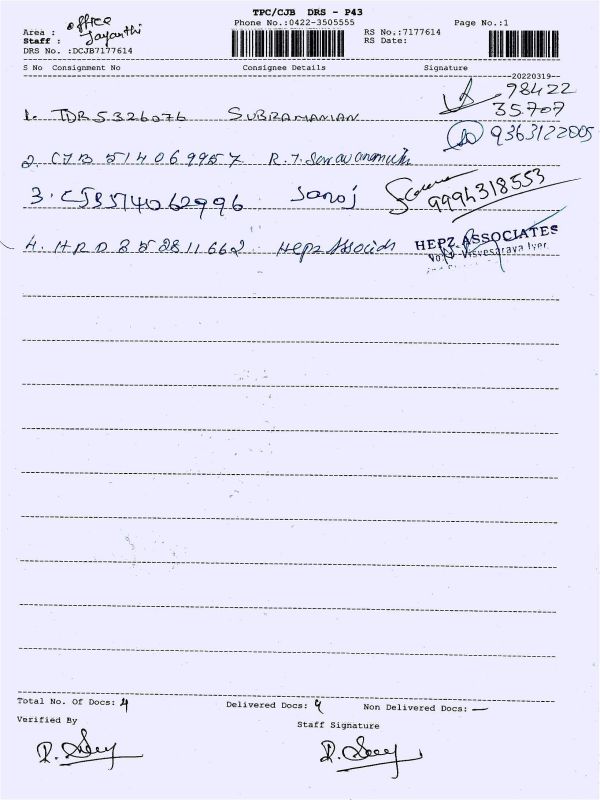 TPC/CJB DRS - P43
Area : office Phone No.:0422-3505555 RS No.:7177614 Page No.:1
Staff : Jayanthi RS Date:
DRS No. :DCJB7177614
S No Consignment No Consignee Details Signature
20220319
1. TDR5326076 SUBRAMANIAN 98422
35707
9363122005
2. CJB 514069957 R.T.
3. CJB514062996 Sanoj 9994318553
4. HRD 852811662 Hepz Associats HEPZ ASSOCIATES
Visvesaraya Iyer
Total No. Of Docs: 4 Delivered Docs: 4 Non Delivered Docs: —
Verified By Staff Signature